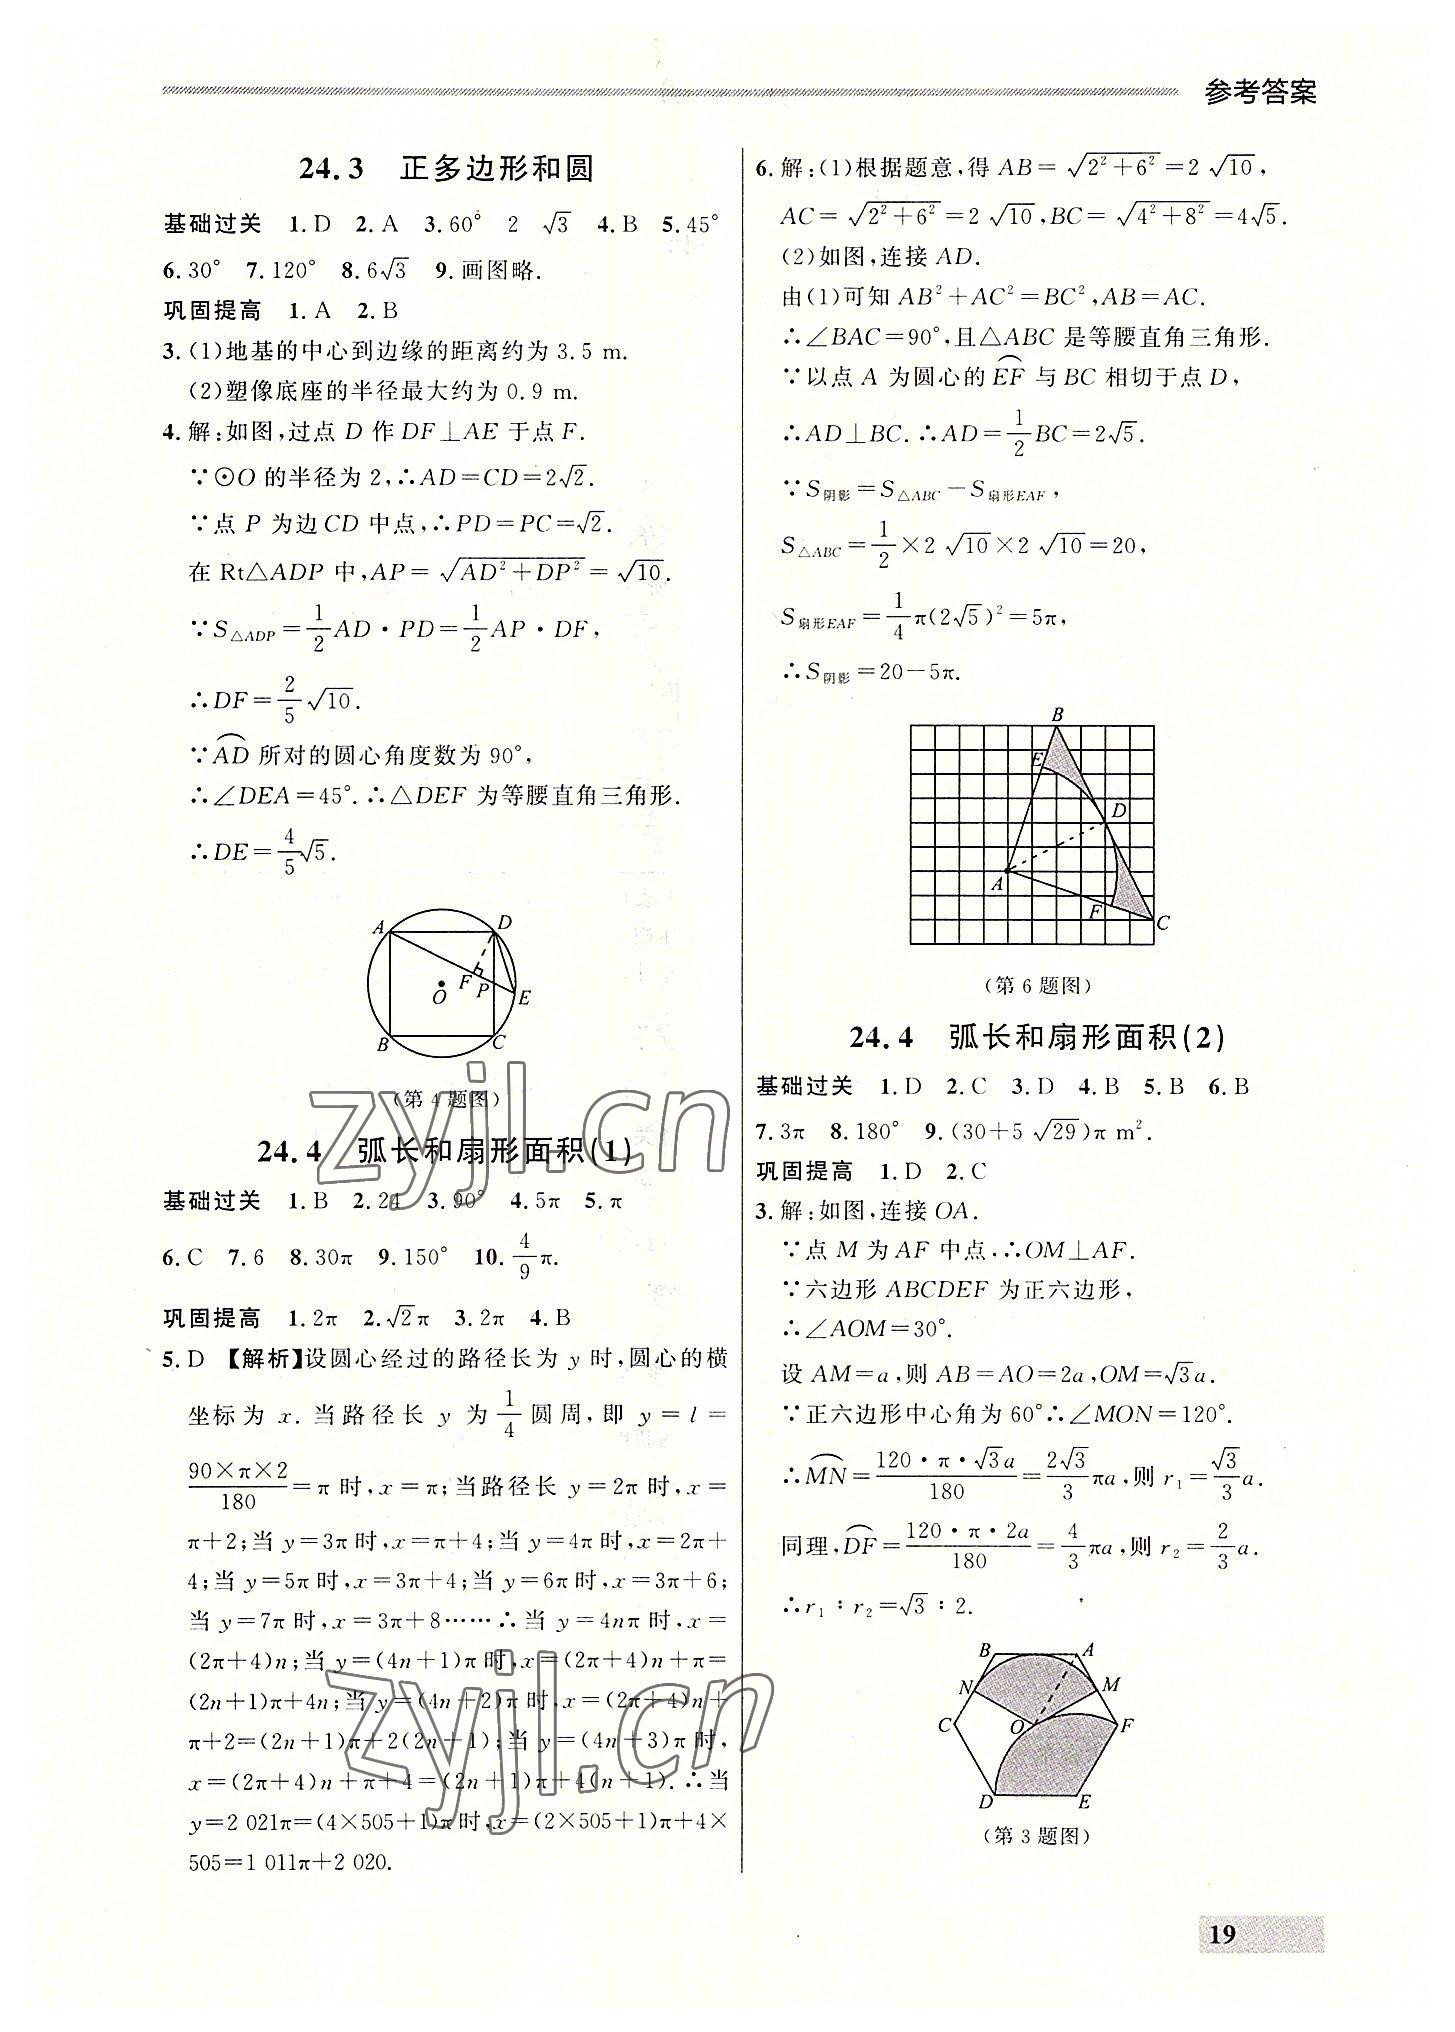 参考答案
24.3 正多边形和圆
基础过关 1.D 2.A 3.60° 2 √3 4.B 5.45°
6.30° 7.120° 8.6√3 9.画图略.
巩固提高 1.A 2.B
3.(1)地基的中心到边缘的距离约为 3.5 m.
(2)塑像底座的半径最大约为 0.9 m.
4.解:如图,过点 D 作 DF⊥AE 于点 F.
∵⊙O 的半径为 2,∴AD=CD=2√2.
∵点 P 为边 CD 中点,∴PD=PC=√2.
在 Rt△ADP 中,AP=√(AD²+DP²)=√10.
∵S△ADP=1/2 AD·PD=1/2 AP·DF,
∴DF=2/5 √10.
∵⌒AD 所对的圆心角度数为 90°,
∴∠DEA=45°.∴△DEF 为等腰直角三角形.
∴DE=4/5 √5.
A D F P E O B C
(第 4 题图)
24.4 弧长和扇形面积(1)
基础过关 1.B 2.24 3.90° 4.5π 5.π
6.C 7.6 8.30π 9.150° 10.4/9 π.
巩固提高 1.2π 2.√2π 3.2π 4.B
5.D 【解析】设圆心经过的路径长为 y 时,圆心的横
坐标为 x. 当路径长 y 为 1/4 圆周,即 y=l=
(90×π×2)/180=π 时,x=π;当路径长 y=2π 时,x=
π+2;当 y=3π 时,x=π+4;当 y=4π 时,x=2π+
4;当 y=5π 时,x=3π+4;当 y=6π 时,x=3π+6;
当 y=7π 时,x=3π+8……∴当 y=4nπ 时,x=
(2π+4)n;当 y=(4n+1)π 时,x=(2π+4)n+π=
(2n+1)π+4n;当 y=(4n+2)π 时,x=(2π+4)n+
π+2=(2n+1)π+2(2n+1);当 y=(4n+3)π 时,
x=(2π+4)n+π+4=(2n+1)π+4(n+1).∴当
y=2 021π=(4×505+1)π 时,x=(2×505+1)π+4×
505=1 011π+2 020.
6.解:(1)根据题意,得 AB=√(2²+6²)=2√10,
AC=√(2²+6²)=2√10,BC=√(4²+8²)=4√5.
(2)如图,连接 AD.
由(1)可知 AB²+AC²=BC²,AB=AC.
∴∠BAC=90°,且△ABC 是等腰直角三角形.
∵以点 A 为圆心的⌒EF 与 BC 相切于点 D,
∴AD⊥BC.∴AD=1/2 BC=2√5.
∵S阴影=S△ABC-S扇形EAF,
S△ABC=1/2×2√10×2√10=20,
S扇形EAF=1/4 π(2√5)²=5π,
∴S阴影=20-5π.
B E D A F C
(第 6 题图)
24.4 弧长和扇形面积(2)
基础过关 1.D 2.C 3.D 4.B 5.B 6.B
7.3π 8.180° 9.(30+5√29)π m².
巩固提高 1.D 2.C
3.解:如图,连接 OA.
∵点 M 为 AF 中点,∴OM⊥AF.
∵六边形 ABCDEF 为正六边形,
∴∠AOM=30°.
设 AM=a,则 AB=AO=2a,OM=√3a.
∵正六边形中心角为 60°∴∠MON=120°.
∴⌒MN=(120·π·√3a)/180=(2√3)/3 πa,则 r₁=√3/3 a.
同理,⌒DF=(120·π·2a)/180=4/3 πa,则 r₂=2/3 a.
∴r₁∶r₂=√3∶2.
B A N M C O F D E
(第 3 题图)
zyjl.cn
zyjl.cn
19